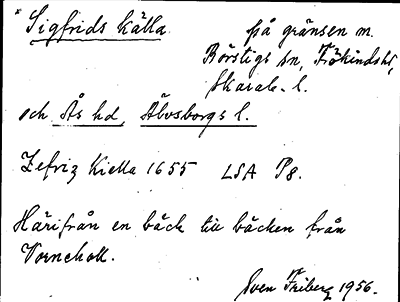 * Sigfrids källa på gränsen m.
Börstigs sn, Frökinds hd,
Skarab. l.
och Ås hd, Älvsborgs l.
Zefriz Kiella 1655 LSA P8.
Härifrån en bäck till bäcken från
Vornekull.
Sven Friberg 1956.